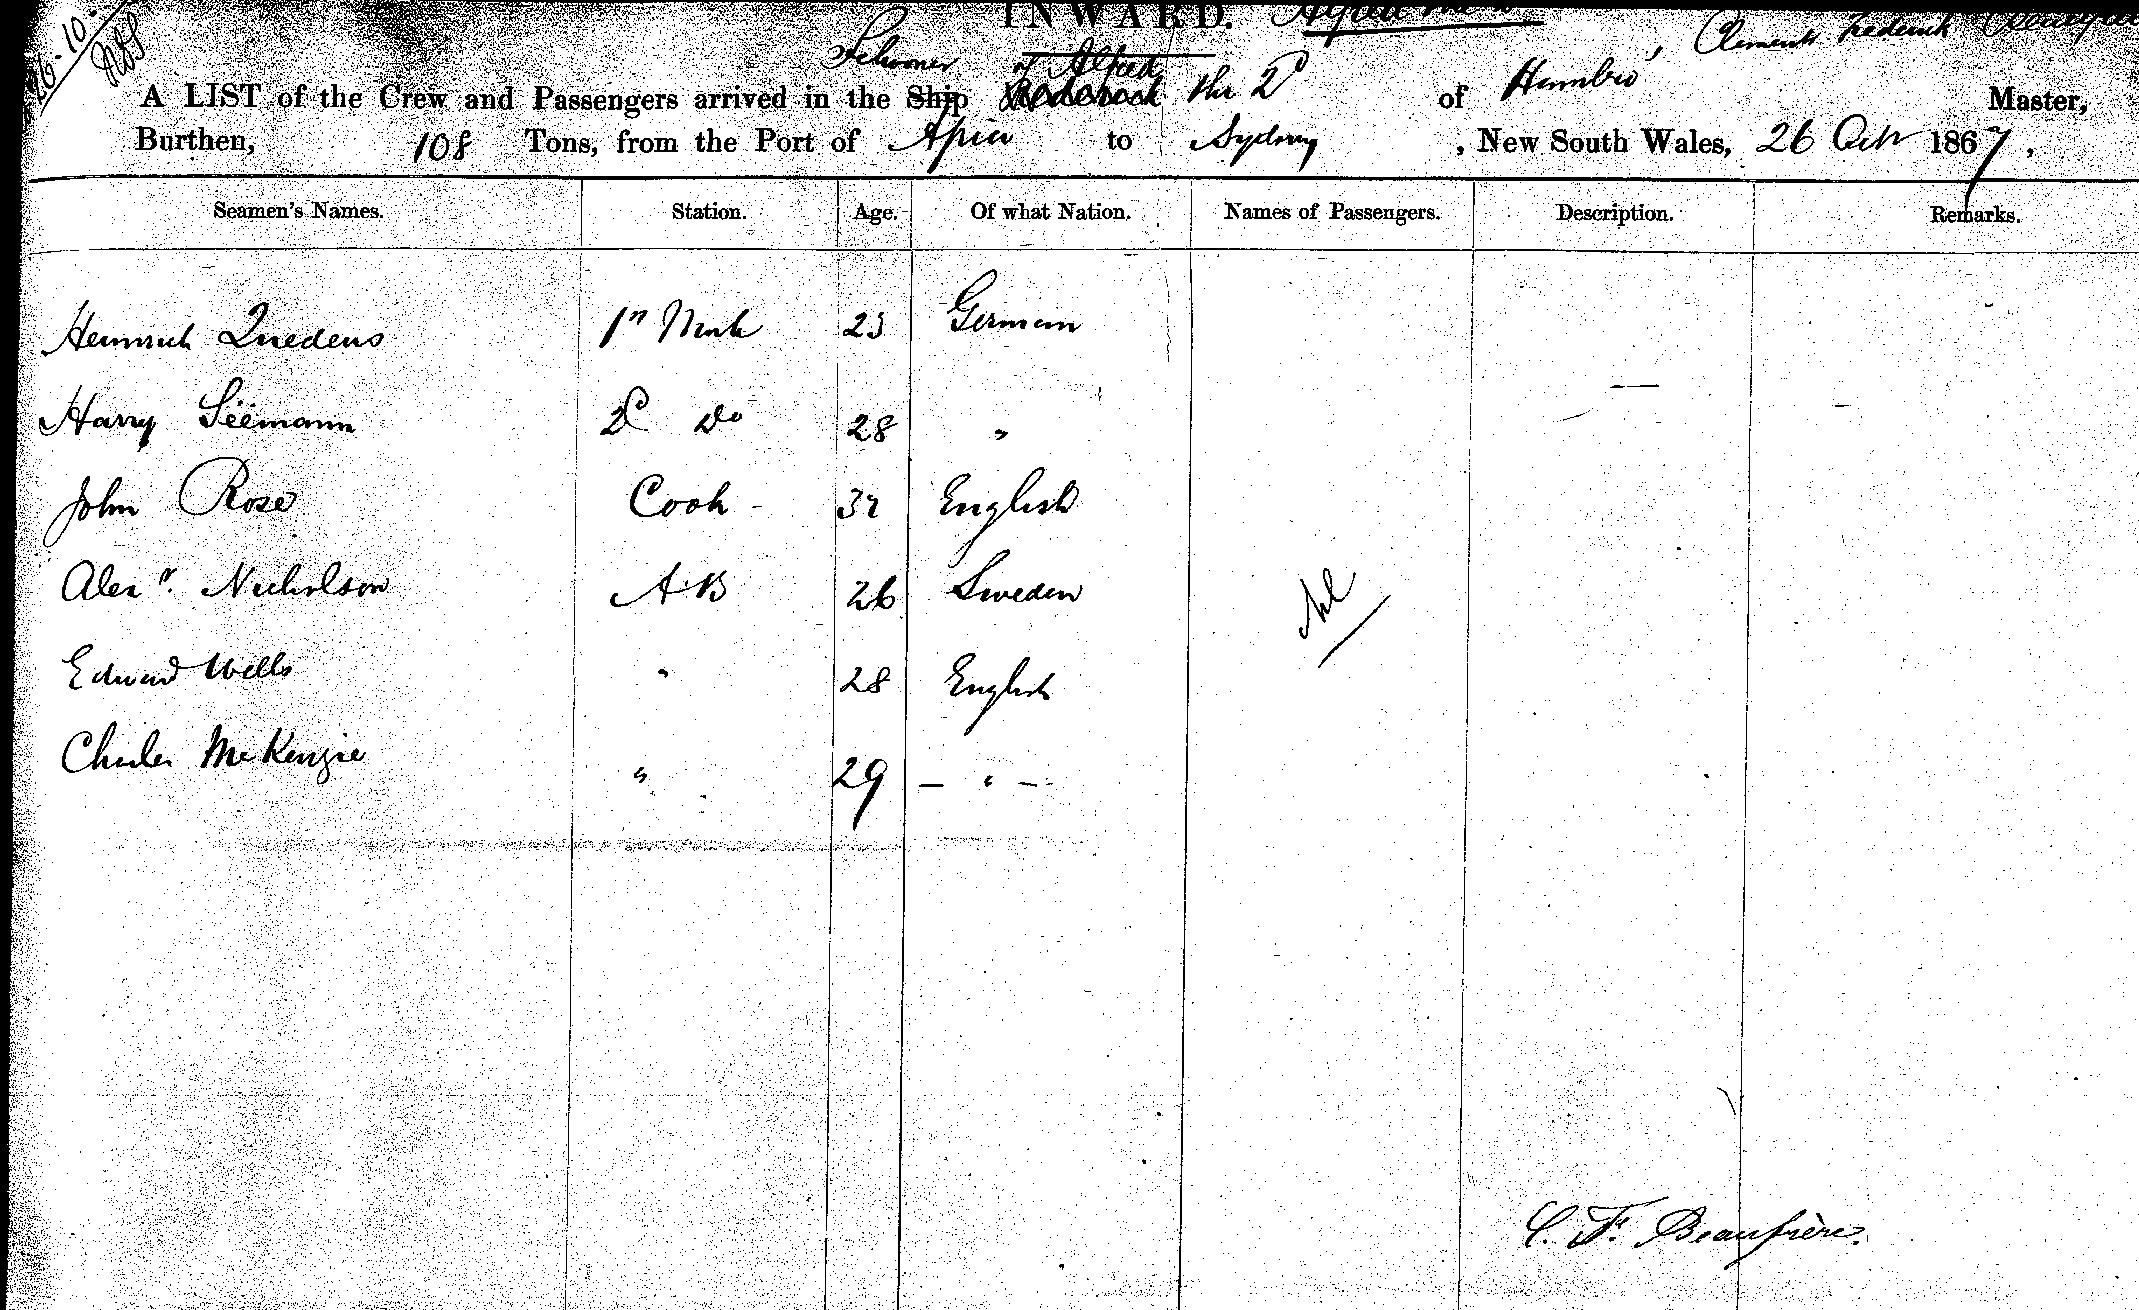 26-10-
INWARD.
Schooner Alfred Clements Frederick
A LIST of the Crew and Passengers arrived in the Ship the 2d of Hambro', Master,
Burthen, 108 Tons, from the Port of Apia to Sydney, New South Wales, 26 Octr 1867,
Seamen's Names. Station. Age. Of what Nation. Names of Passengers. Description. Remarks.
Heinrich Quedens 1st Mate 23 German
Harry Séemann 2d Do 28 "
John Rose Cook - 32 English
Alexr. Nicholson A.B 26 Sweden
Edward Wells " 28 English
Nil
Charles McKenzie " 29 - " -
C. F. Beaufrère.